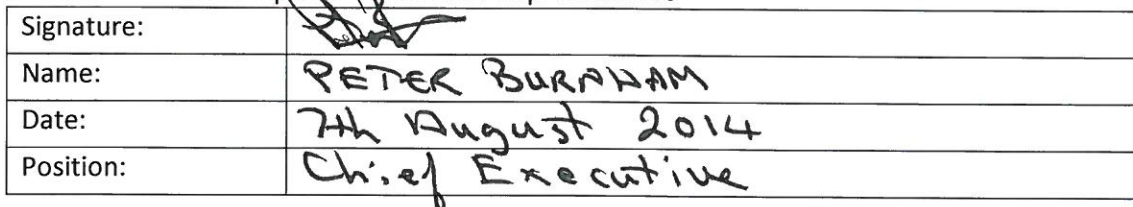 Signature:
Name: PETER BURNHAM
Date: 7th August 2014
Position: Chief Executive